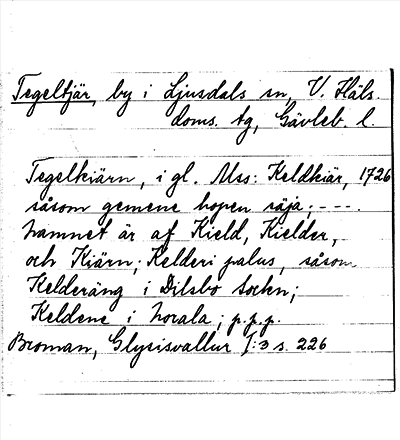 Tegeltjär, by i Ljusdals sn, V. Häls.
doms. tg, Gävleb. l.
Tegelkiärn, i gl. Mss: Keldkiär, 1726
såsom gemene hopen säja; ---.
Namnet är af Kield, Kielder,
och Kiärn; Kelderi palus, såsom
Kelderäng i Dilsbo Sockn;
Keldene i Norala; p.p.p.
Broman, Glysisvallur I:3 s. 226